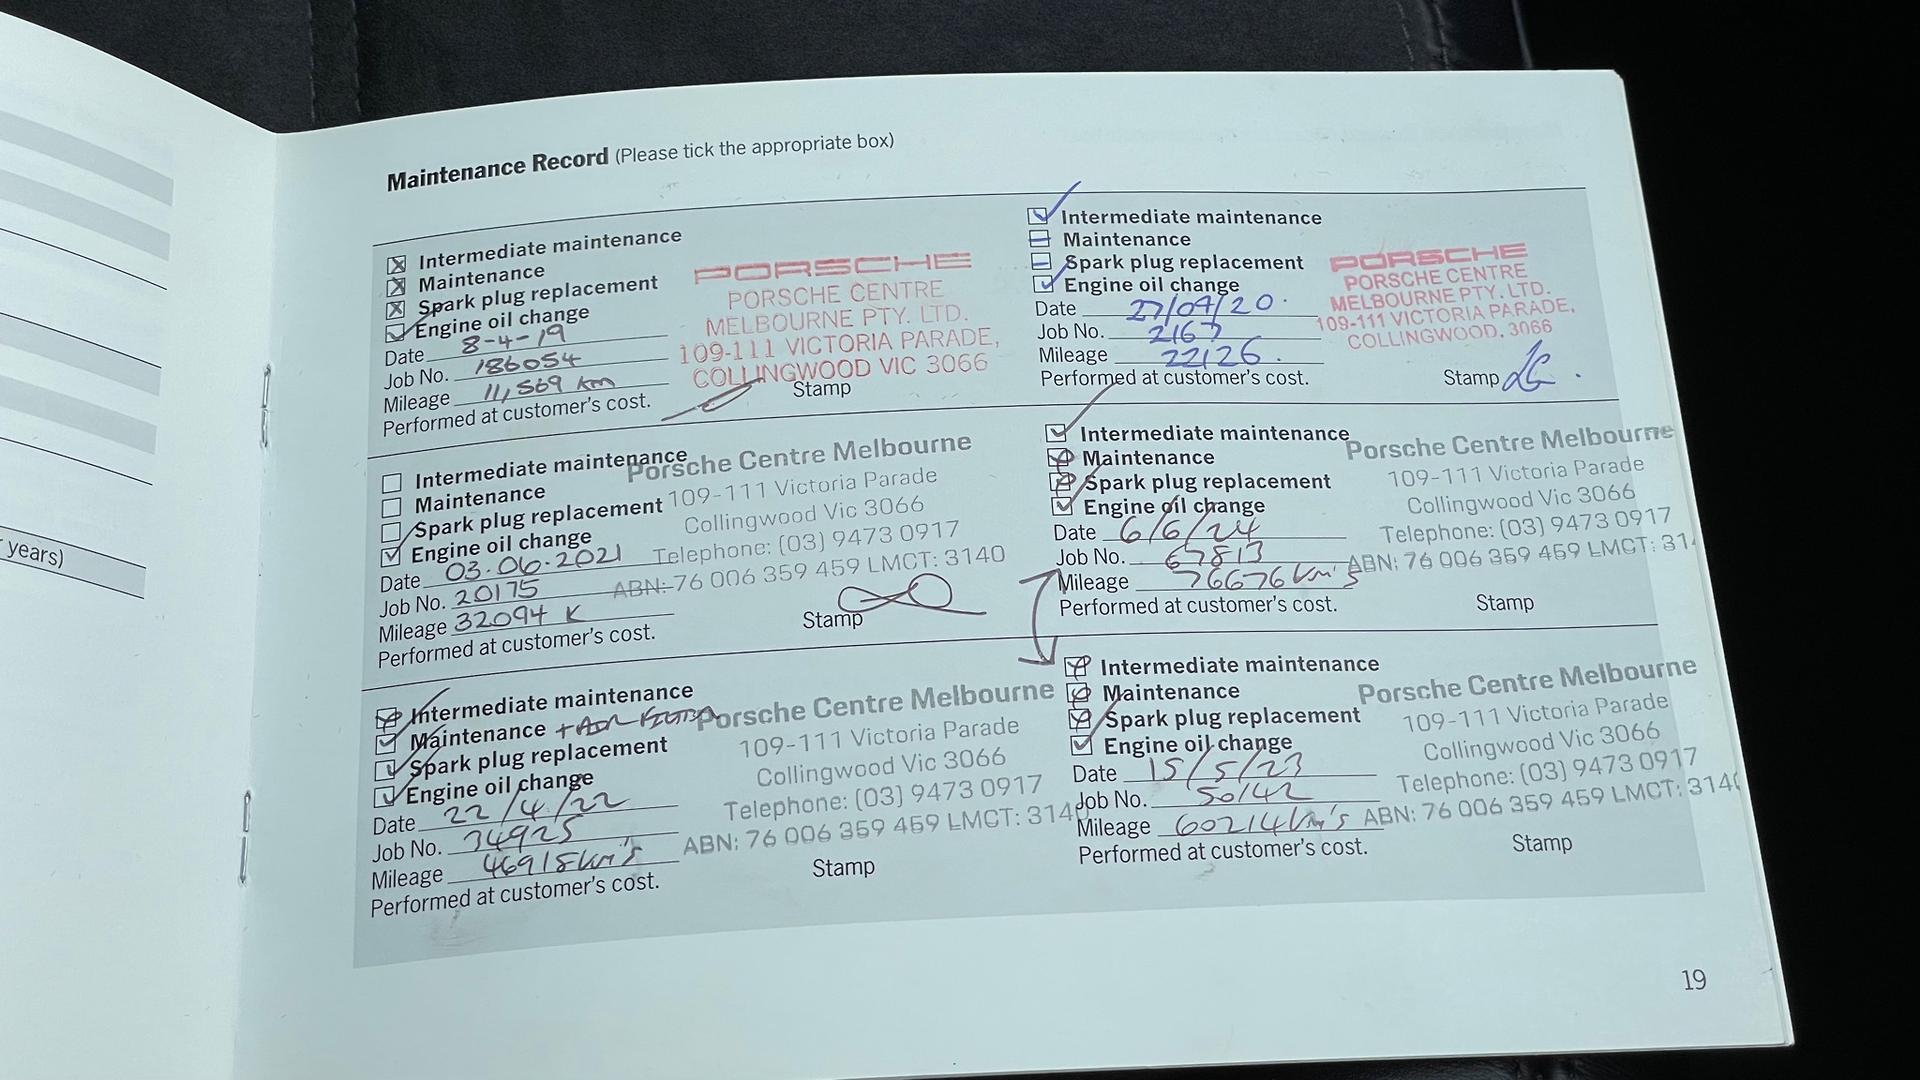 years)
Maintenance Record (Please tick the appropriate box)
Intermediate maintenance
Maintenance
Spark plug replacement
Engine oil change
Date 8-4-19
Job No. 186054
Mileage 11,569 km
Performed at customer's cost.
PORSCHE
PORSCHE CENTRE
MELBOURNE PTY. LTD.
109-111 VICTORIA PARADE,
COLLINGWOOD VIC 3066
Stamp
Intermediate maintenance
Maintenance
Spark plug replacement
Engine oil change
Date 27/04/20
Job No. 2167
Mileage 22126.
Performed at customer's cost.
PORSCHE
PORSCHE CENTRE
MELBOURNE PTY. LTD.
109-111 VICTORIA PARADE,
COLLINGWOOD, 3066
Stamp
Intermediate maintenance
Maintenance
Spark plug replacement
Engine oil change
Date 03.06.2021
Job No. 20175
Mileage 32094 K
Performed at customer's cost.
Porsche Centre Melbourne
109-111 Victoria Parade
Collingwood Vic 3066
Telephone: (03) 9473 0917
ABN: 76 006 359 459 LMCT: 3140
Stamp
Intermediate maintenance
Maintenance
Spark plug replacement
Engine oil change
Date 6/6/24
Job No. 67813
Mileage 76676 km's
Performed at customer's cost.
Porsche Centre Melbourne
109-111 Victoria Parade
Collingwood Vic 3066
Telephone: (03) 9473 0917
ABN: 76 006 359 459 LMCT: 314
Stamp
Intermediate maintenance
Maintenance + Air Filter
Spark plug replacement
Engine oil change
Date 22/4/22
Job No. 34925
Mileage 46918 km's
Performed at customer's cost.
Porsche Centre Melbourne
109-111 Victoria Parade
Collingwood Vic 3066
Telephone: (03) 9473 0917
ABN: 76 006 359 459 LMCT: 3140
Stamp
Intermediate maintenance
Maintenance
Spark plug replacement
Engine oil change
Date 15/5/23
Job No. 50142
Mileage 60214 km's
Performed at customer's cost.
Porsche Centre Melbourne
109-111 Victoria Parade
Collingwood Vic 3066
Telephone: (03) 9473 0917
ABN: 76 006 359 459 LMCT: 3140
Stamp
19